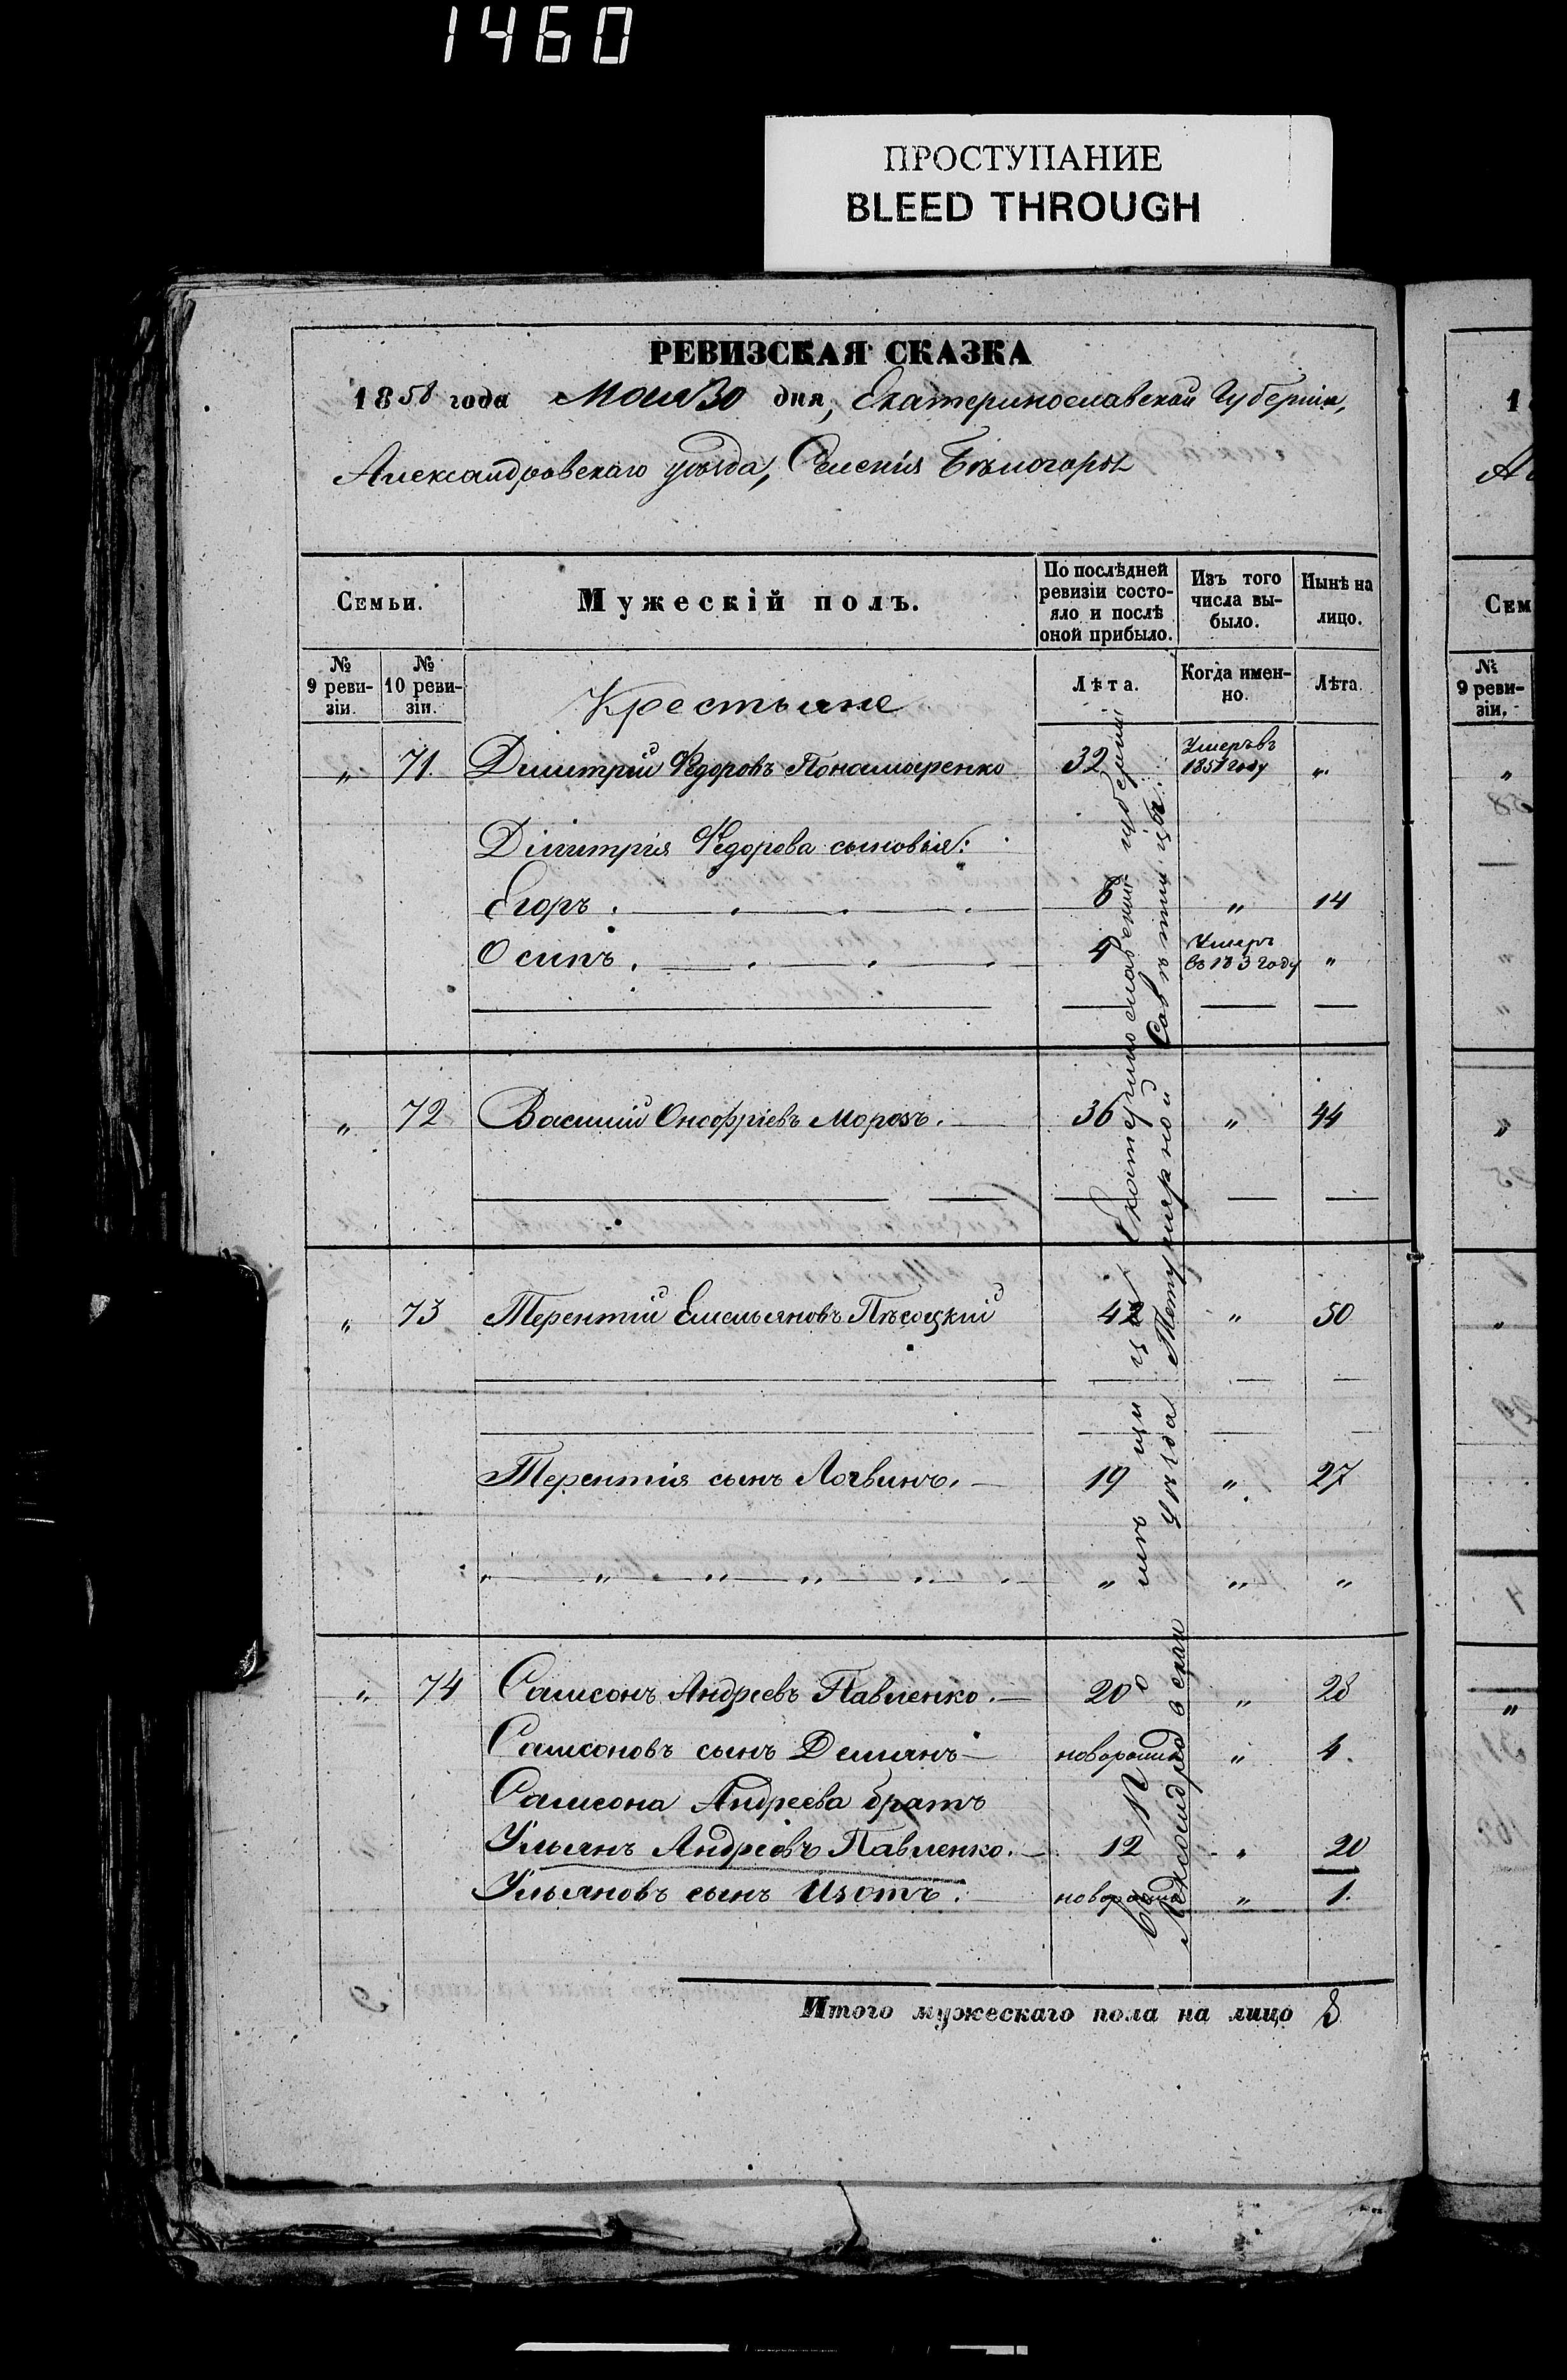 1460
ПРОСТУПАНИЕ
BLEED THROUGH
РЕВИЗСКАЯ СКАЗКА
1858 года Мая 30 дня, Екатеринославской Губерніи,
Александровскаго уѣзда, Селенія Бѣлогоры
Семьи.
Мужескій полъ.
По послѣдней ревизіи состояло и послѣ оной прибыло.
Изъ того числа выбыло.
Нынѣ на лицо.
№ 9 ревизіи.
№ 10 ревизіи.
Крестьяне
Лѣта.
Когда именно.
Лѣта.
„ 71. Димитрій Ѳедоровъ Пономаренко 32 Умеръ въ 1851 году „
Димитрія Ѳедорова сыновья:
Егоръ. 6 „ 14
Осипъ. 4 Умеръ въ 1853 году „
„ 72 Василій Онофріевъ Морозъ. 36 „ 44
„ 73 Терентій Емельяновъ Пѣсоцкій 42 „ 50
Терентія сынъ Логвинъ. 19 „ 27
„ „ „ „ „ „ „ „
„ 74 Самсонъ Андреевъ Павленко. 20 „ 28
Самсоновъ сынъ Демьянъ новорожд „ 4.
Самсона Андреева братъ
Ульянъ Андреевъ Павленко. 12 „ 20
Ульяновъ сынъ Изотъ. новорожд „ 1.
Екатеринославской губерніи
Александровскаго Уѣзда
Итого мужескаго пола на лицо 8
1
Сем
№ 9 ревизіи.